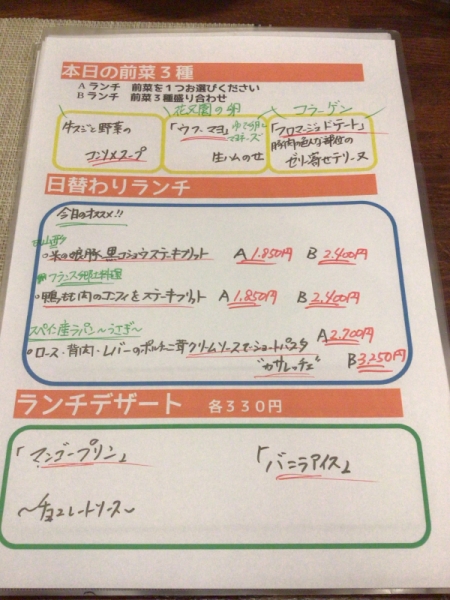 本日の前菜3種
Aランチ 前菜を1つお選びください
Bランチ 前菜3種盛り合わせ
牛すじと野菜の
コンソメスープ
花文園の卵
「ウフ・マヨ」
生ハムのせ
コラーゲン
「フロマージュドテート」
ゼリー寄せテリーヌ
日替わりランチ
今日のオススメ!!
米の娘豚 黒コショウステーキフリット A 1.850円 B 2.400円
フランス郷土料理
鴨もも肉のコンフィ&ステーキフリット A 1.850円 B 2.400円
スペイン産ラパン〜うさぎ〜
ロース・背肉・レバーのポルチーニ茸クリームソースで・ショートパスタ A 2.700円
"カサレッチェ" B 3.250円
ランチデザート 各330円
「マンゴープリン」
〜チョコレートソース〜
「バニラアイス」